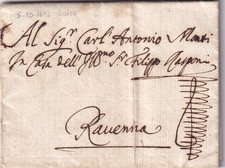 Al Sigr Carl' Antonio Monti
In Casa dell' Illmo Sr Filippo Rasponi
Ravenna